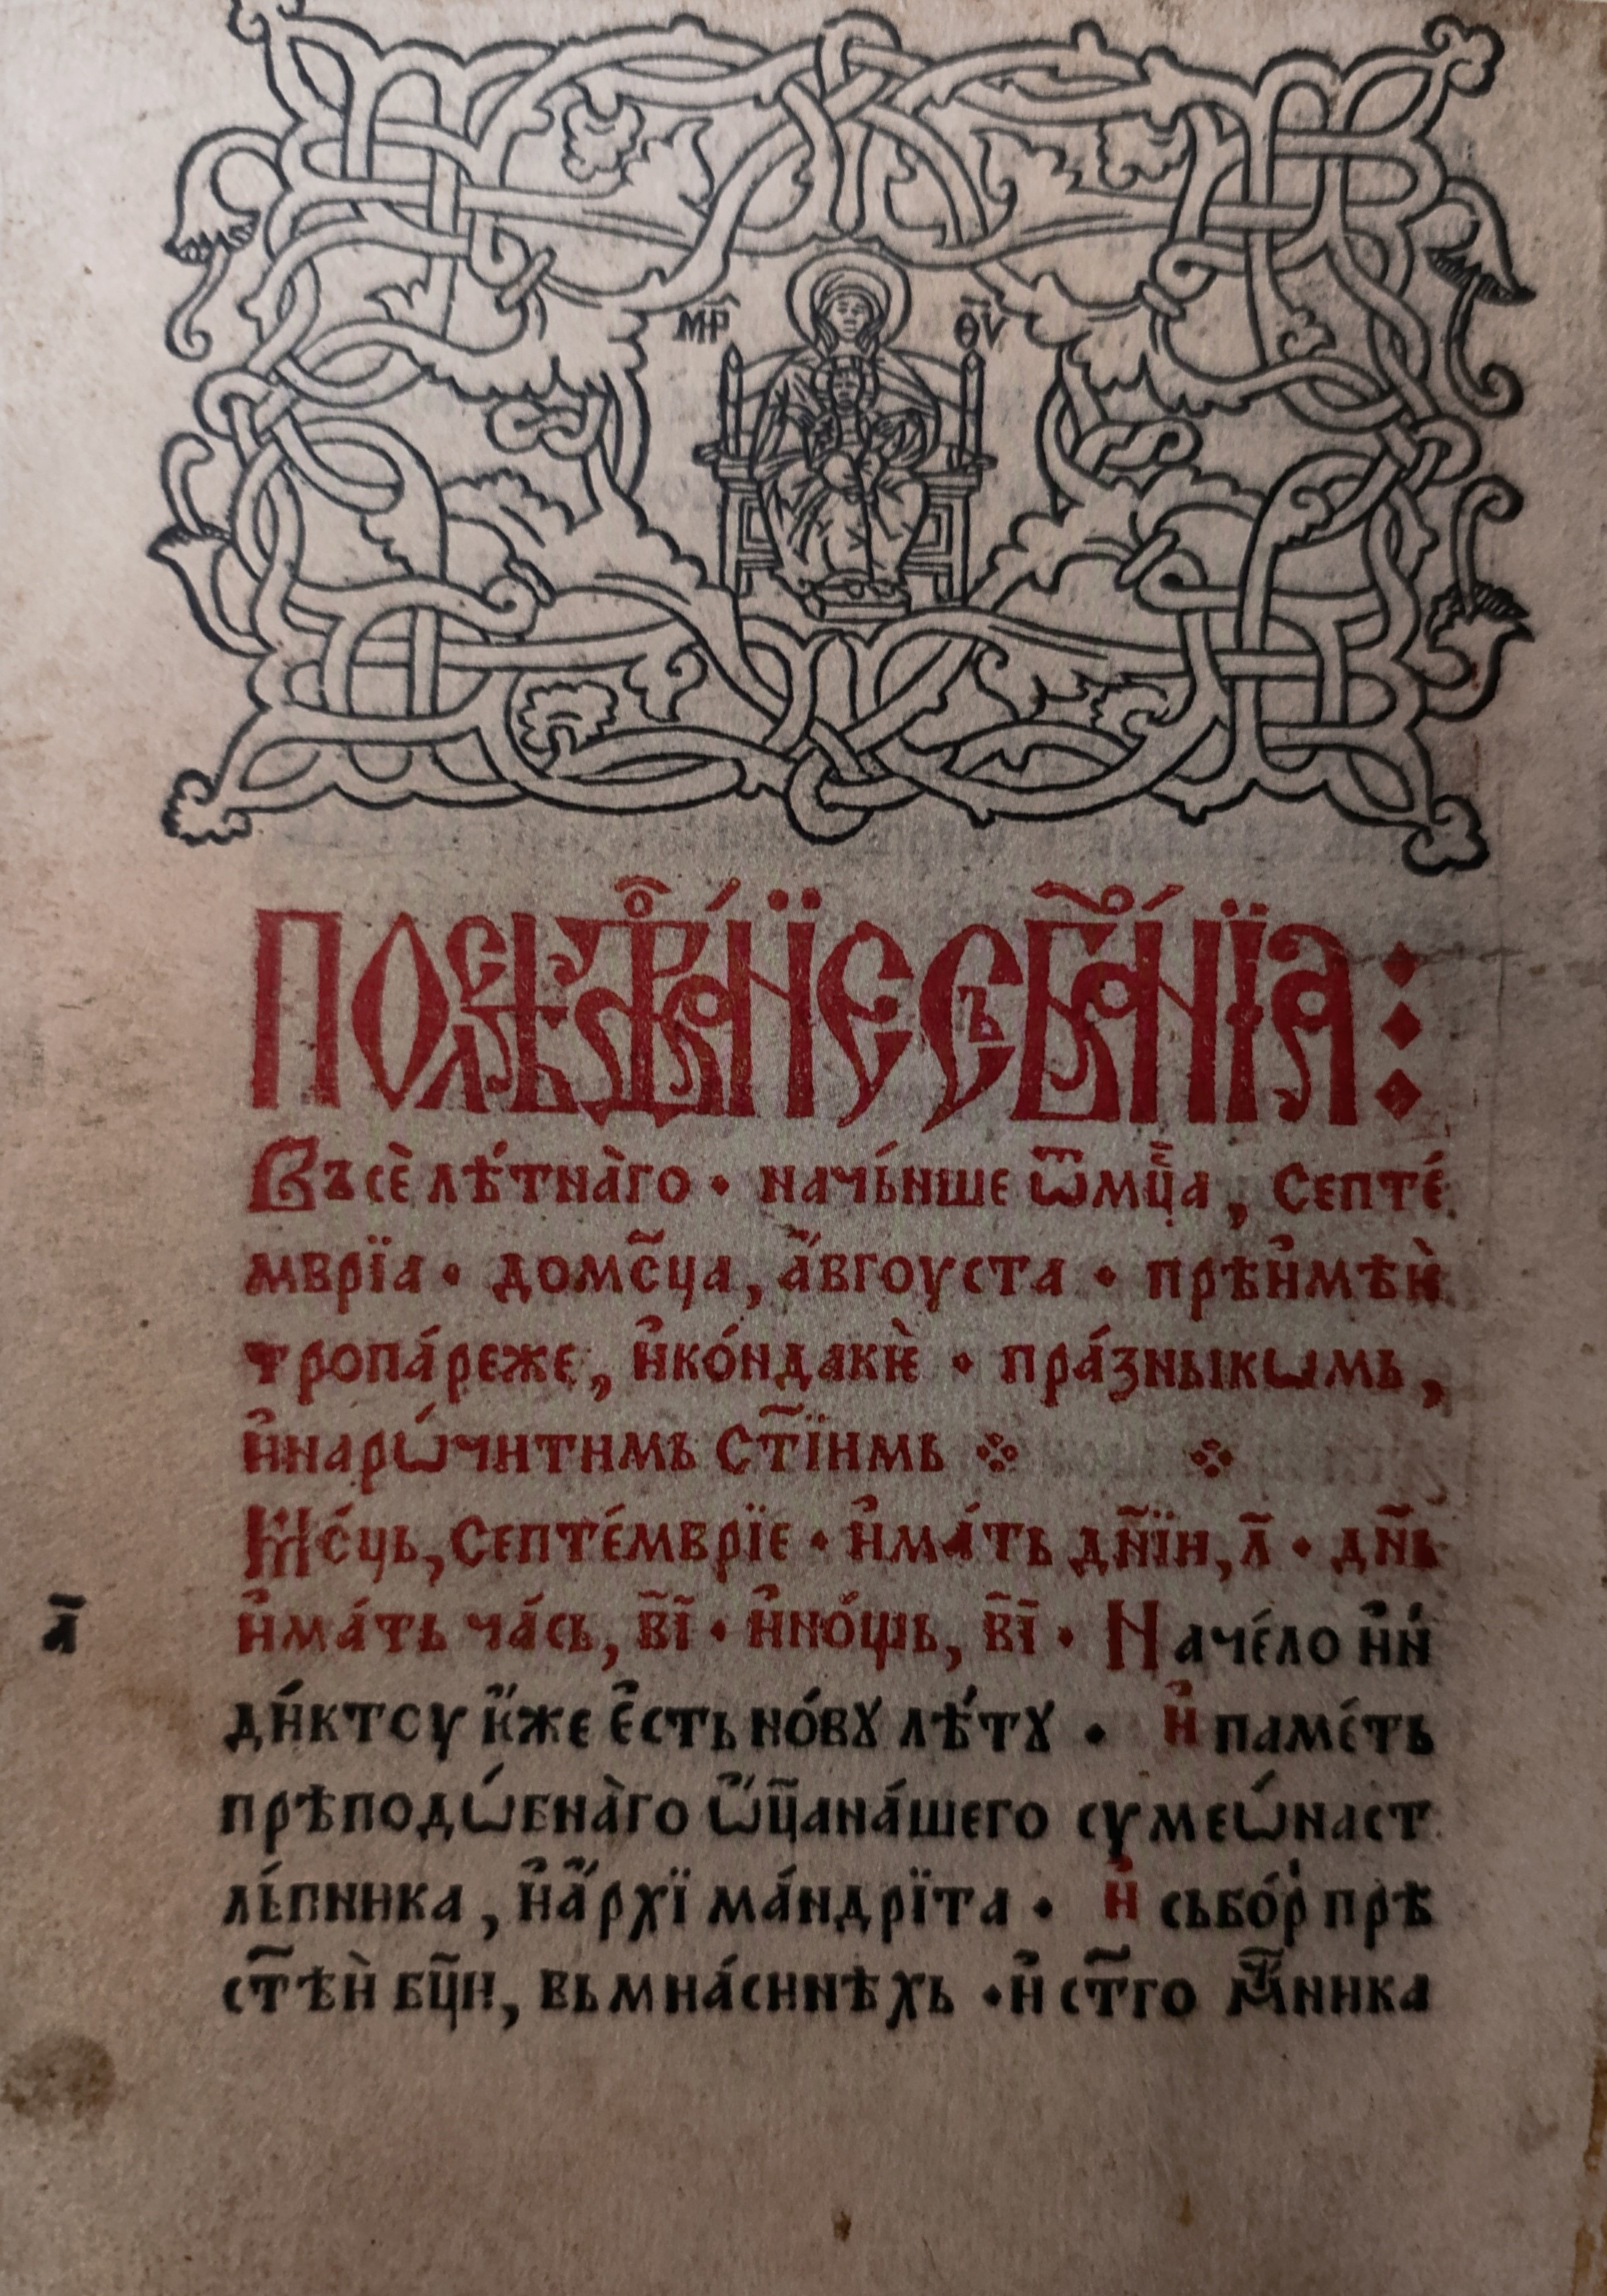 МР ѲѴ
ПОСЛѢДОВАНЇЕ СЪБРАНЇА :
Въсѐ лѣ́тна̀го · начь́нше ѿмц҃а , септе́
мврїа · домс҃ца , а҆́вгоуста · прѣи҆мѣѝ
тропа́реже , и҆ко́ндакѝе · пра́зныкѡмь ,
и҆нарѡ́читимь ст҃їимь
Мс́ць , септе́мврїе · и҆ма́ть дн҃їи , л҃ · дн҃ь
и҆ма́ть ча́сь , в҃і҃ · и҆но́щь , в҃і҃ · Наче́ло и҆и́н
л҃
ди́ктоу и҆́же є҆́сть но́вꙋ лѣ́тꙋ · и҆ паме́ть
прѣподѡ́бна̀го ѡ҆ц҃ана́шего сѵмеѡ́наст
ль́пника , и҆а҆́рхїма́ндрїта · и҆ сьбо́р прѣ
ст҃ѣѝ бц҃и , вьмна́синѣхь · и҆ ст҃го мч҃ника